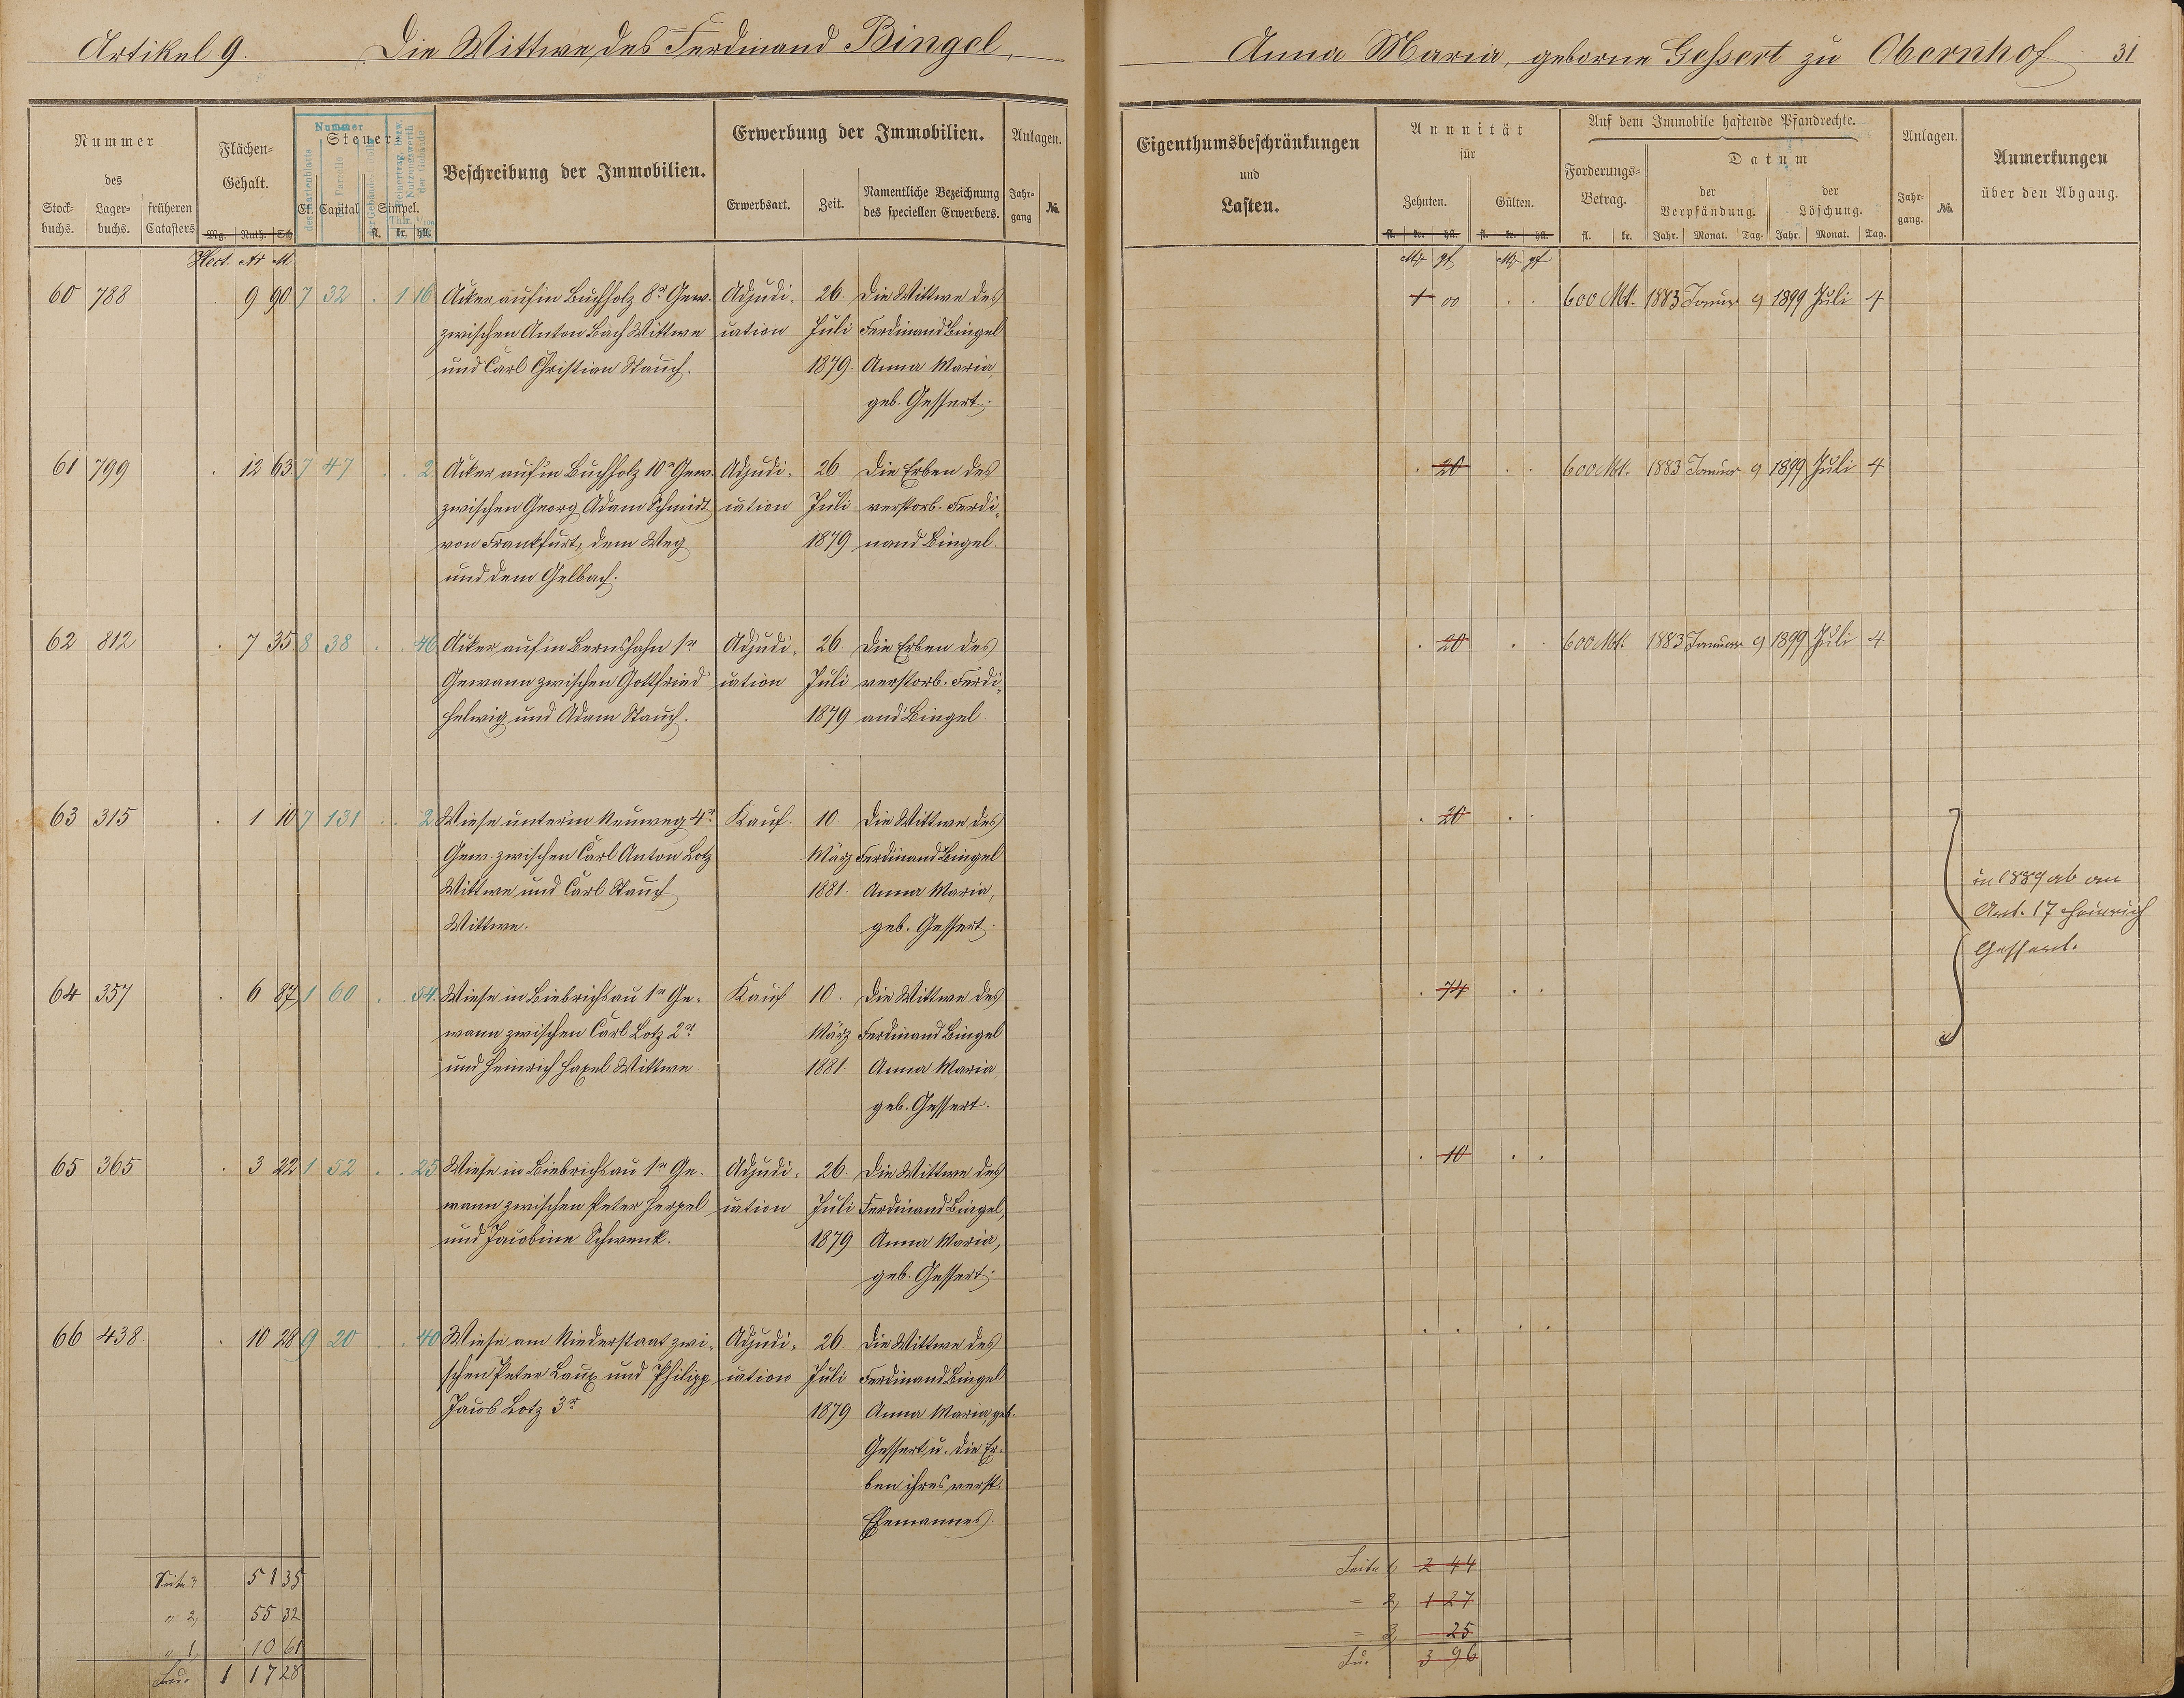 Artikel 9. Die Wittwe des Ferdinand Bingel,
Anna Maria, geborne Gessert zu Obernhof 31
Nummer
des
Stock-
buchs.
Lager-
buchs.
früheren
Catasters
Flächen-
Gehalt.
Mg. Ruth. Sch
Hect. Ar M
Nummer
Steuer
Cl. Capital Simpel.
fl. kr. hll.
Beschreibung der Immobilien.
Erwerbung der Immobilien.
Erwerbsart. Zeit.
Namentliche Bezeichnung
des speciellen Erwerbers.
Anlagen.
Jahr-
gang
No.
Eigenthumsbeschränkungen
und
Lasten.
Annuität
für
Zehnten. Gülten.
fl. kr. hll. fl. kr. hll.
Mk pf Mk pf
Auf dem Immobile haftende Pfandrechte.
Forderungs-
Betrag.
fl. kr.
Datum
der
Verpfändung.
der
Löschung.
Jahr. Monat. Tag. Jahr. Monat. Tag.
Anlagen.
Jahr-
gang.
No.
Anmerkungen
über den Abgang.
60 788 9 90 7 32 1 16 Acker auf'm Buchholz 8r Gew. Adjudi- 26 Die Wittwe des 1 00 600 Mk. 1883 Januar 9 1899 Juli 4
zwischen Anton Bach Wittwe cation Juli Ferdinand Bingel
und Carl Christian Stauch. 1879. Anna Maria,
geb. Gessert.
61 799 12 63 7 47 2 Acker auf'm Buchholz 10r Gew. Adjudi- 26 Die Erben des 20 600 Mk. 1883 Januar 9 1899 Juli 4
zwischen Georg Adam Schmidt cation Juli verstorb. Ferdi-
von Frankfurt, dem Weg 1879 nand Bingel.
und dem Gelbach.
62 812 7 35 8 38 46 Acker auf'm Bernshahn 1r Adjudi- 26 Die Erben des 20 600 Mk. 1883 Januar 9 1899 Juli 4
Gewann zwischen Gottfried cation Juli verstorb. Ferdi-
Helwig und Adam Stauch. 1879 and Bingel.
63 315 1 10 7 131 2 Wiese unterm Neuweg 4r Kauf. 10 Die Wittwe des 20
Gew. zwischen Carl Anton Lotz März Ferdinand Bingel
Wittwe und Carl Stauch 1881. Anna Maria,
Wittwe. geb. Gessert.
in 1889 ab an
Art. 17 Heinrich
Gessert.
64 357 6 87 1 60 54 Wiese in Biebrichsau 1r Ge- Kauf 10. Die Wittwe des 74
wann zwischen Carl Lotz 2r März Ferdinand Bingel
und Heinrich Hepel Wittwe 1881. Anna Maria
geb. Gessert.
65 365 3 22 1 52 25 Wiese in Biebrichsau 1r Ge- Adjudi- 26 Die Wittwe des 10
wann zwischen Peter Herpel cation Juli Ferdinand Bingel,
und Jacobine Schwenk. 1879 Anna Maria,
geb. Gessert.
66 438 10 28 9 20 40 Wiese am Niederstaat zwi- Adjudi- 26 Die Wittwe des
schen Peter Laux und Philipp cation Juli Ferdinand Bingel
Jacob Lotz 3r 1879 Anna Maria, geb.
Gessert u. die Er-
ben ihres verst.
Ehemannes.
Seite 3 51 35
" 2, 55 32
" 1, 10 61
Su. 1 17 28
Seite 1, 2 44
= 2, 1 27
= 3, 25
Su. 3 96